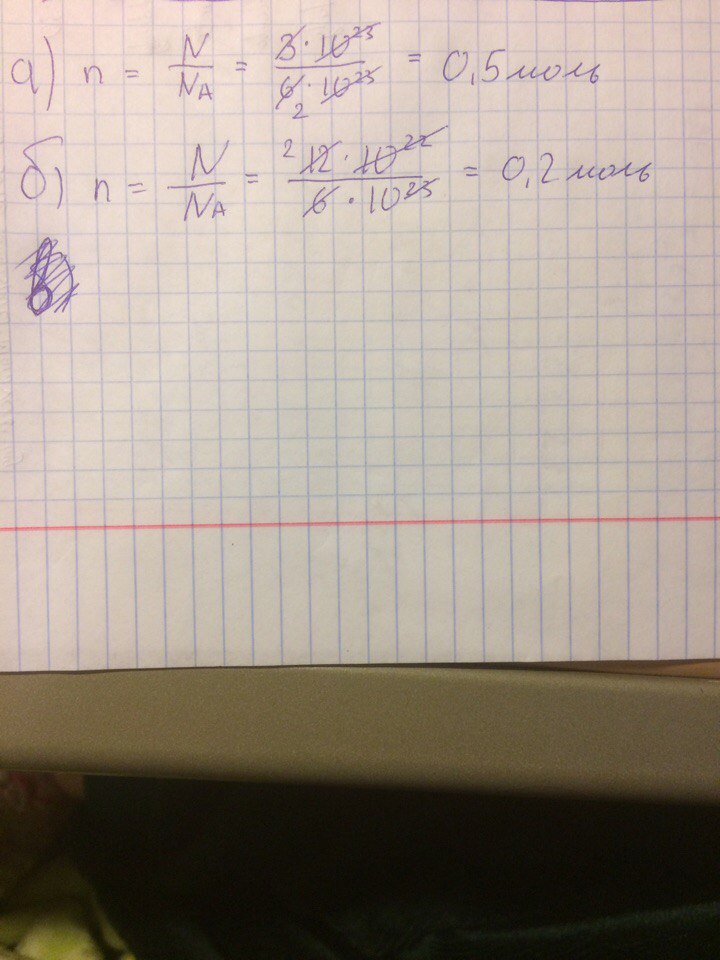 а) n = N/NA = 3·10²³/6·10²³ 2 = 0,5 моль
б) n = N/NA = 2 12·10²²/6·10²³ = 0,2 моль